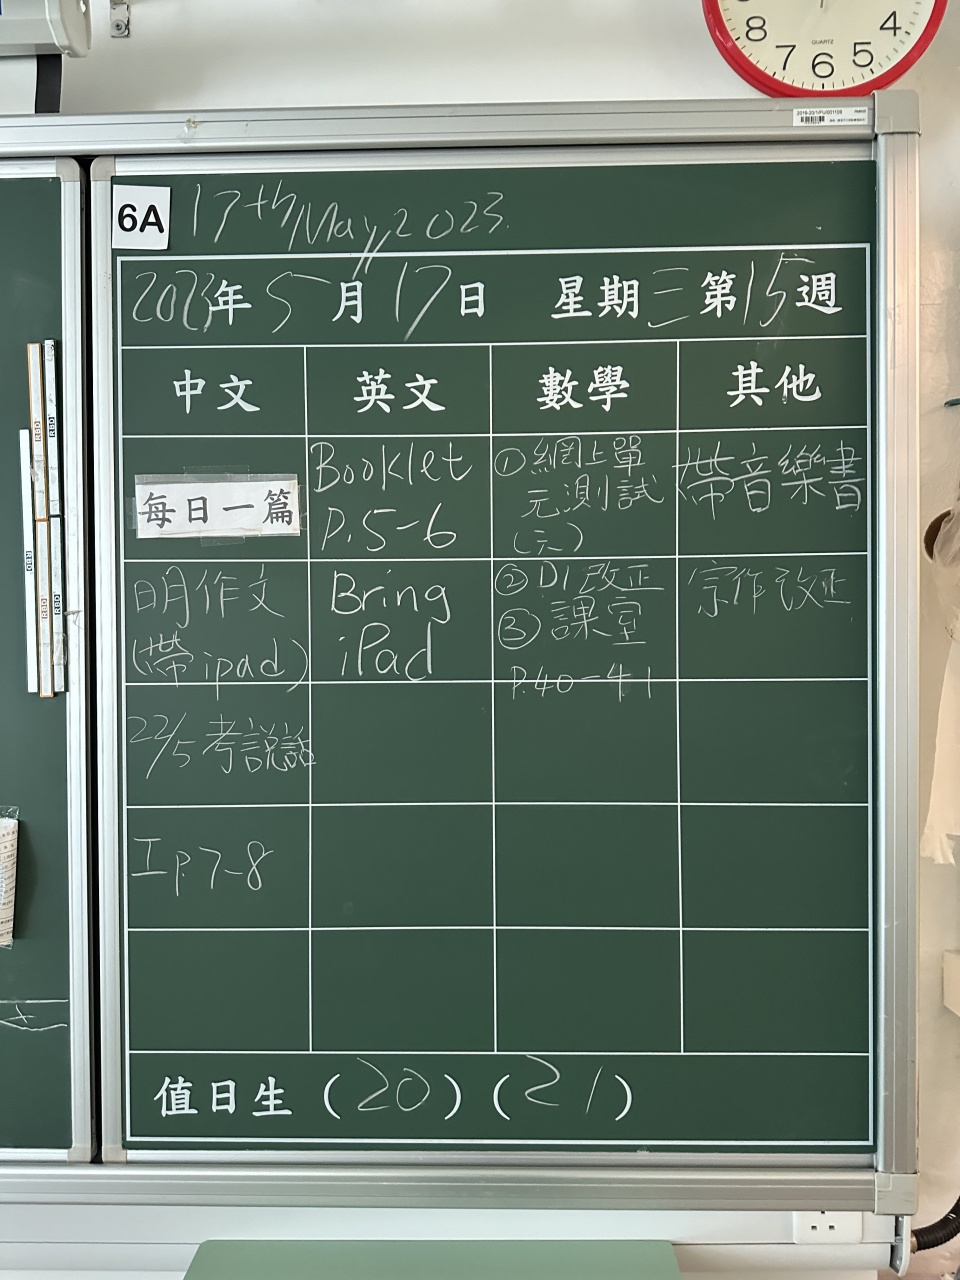 8 7 6 5 4
QUARTZ
2019-20/1/PU/001108
6A 17th May, 2023.
2023年5月17日 星期三第15週
中文 英文 數學 其他
每日一篇
Booklet
P.5-6
①網上單
元測試
(六)
帶音樂書
明作文
(帶ipad)
Bring
iPad
②D1改正
③課室
P.40-41
宗作改正
22/5考說話
工P.7-8
值日生 (20) (21)
RBD
RBD
RBD
RBD
RBD